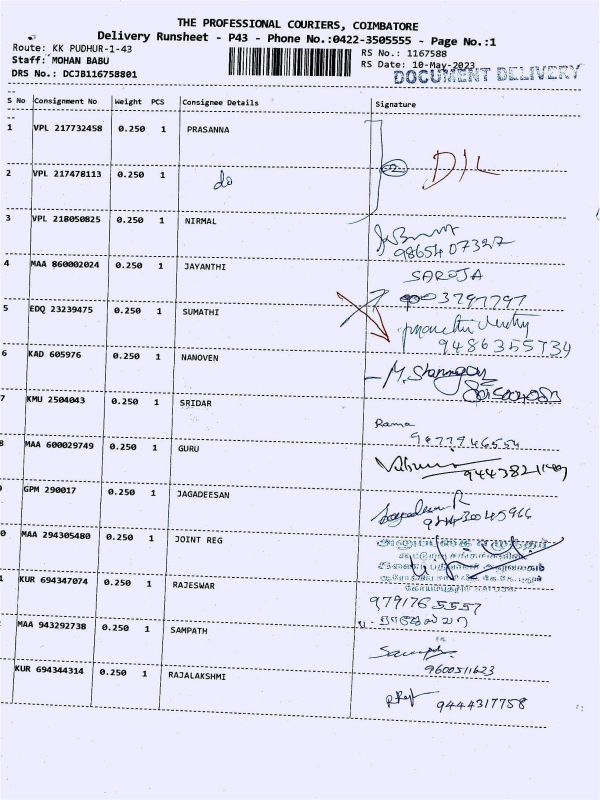 THE PROFESSIONAL COURIERS, COIMBATORE
Delivery Runsheet - P43 - Phone No.:0422-3505555 - Page No.:1
Route: KK PUDHUR-1-43
RS No.: 1167588
Staff: MOHAN BABU
RS Date: 10-May-2023
DRS No.: DCJB116758801
DOCUMENT DELIVERY
S No Consignment No Weight PCS Consignee Details Signature
1 VPL 217732458 0.250 1 PRASANNA
D/L
2 VPL 217478113 0.250 1 do
3 VPL 218050825 0.250 1 NIRMAL
9865407327
4 MAA 860002024 0.250 1 JAYANTHI SAROJA
9003797797
5 EDQ 23239475 0.250 1 SUMATHI
9486355739
6 KAD 605976 0.250 1 NANOVEN
7 KMU 2504043 0.250 1 SRIDAR Rama
8 MAA 600029749 0.250 1 GURU
9 GPM 290017 0.250 1 JAGADEESAN
0 MAA 294305480 0.250 1 JOINT REG
1 KUR 694347074 0.250 1 RAJESWAR 9791765557
2 MAA 943292738 0.250 1 SAMPATH
9600511623
KUR 694344314 0.250 1 RAJALAKSHMI 9444317758